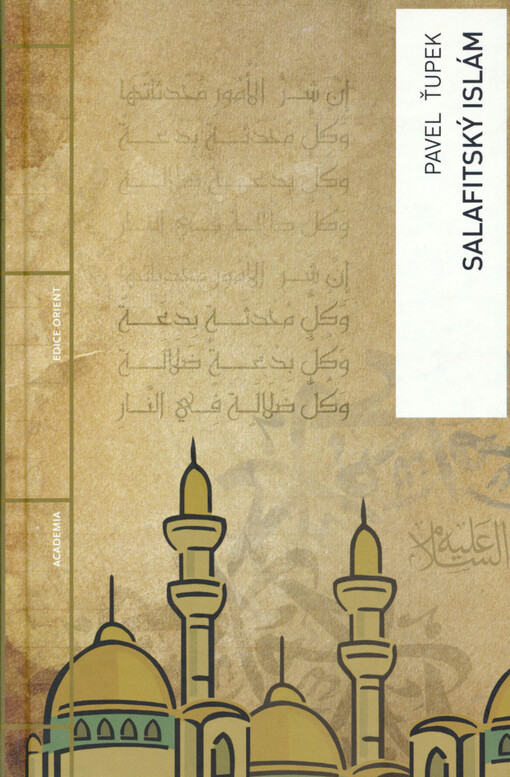 PAVEL ŤUPEK
SALAFITSKÝ ISLÁM
إن شرُّ الأمور محدثاتها
وكلّ محدثة بدعةٌ
وكلّ بدعة ضلالة
وكلّ ضلالة في النار
إن شرُّ الأمور محدثاتها
وَكلِّ مُحدثة بِدعَةٌ
وَكلُّ بِدْعَةٍ ضَلالة
وَكُلُّ ضَلالَةٍ فِي النَّار
EDICE ORIENT
ACADEMIA
عليه السلام